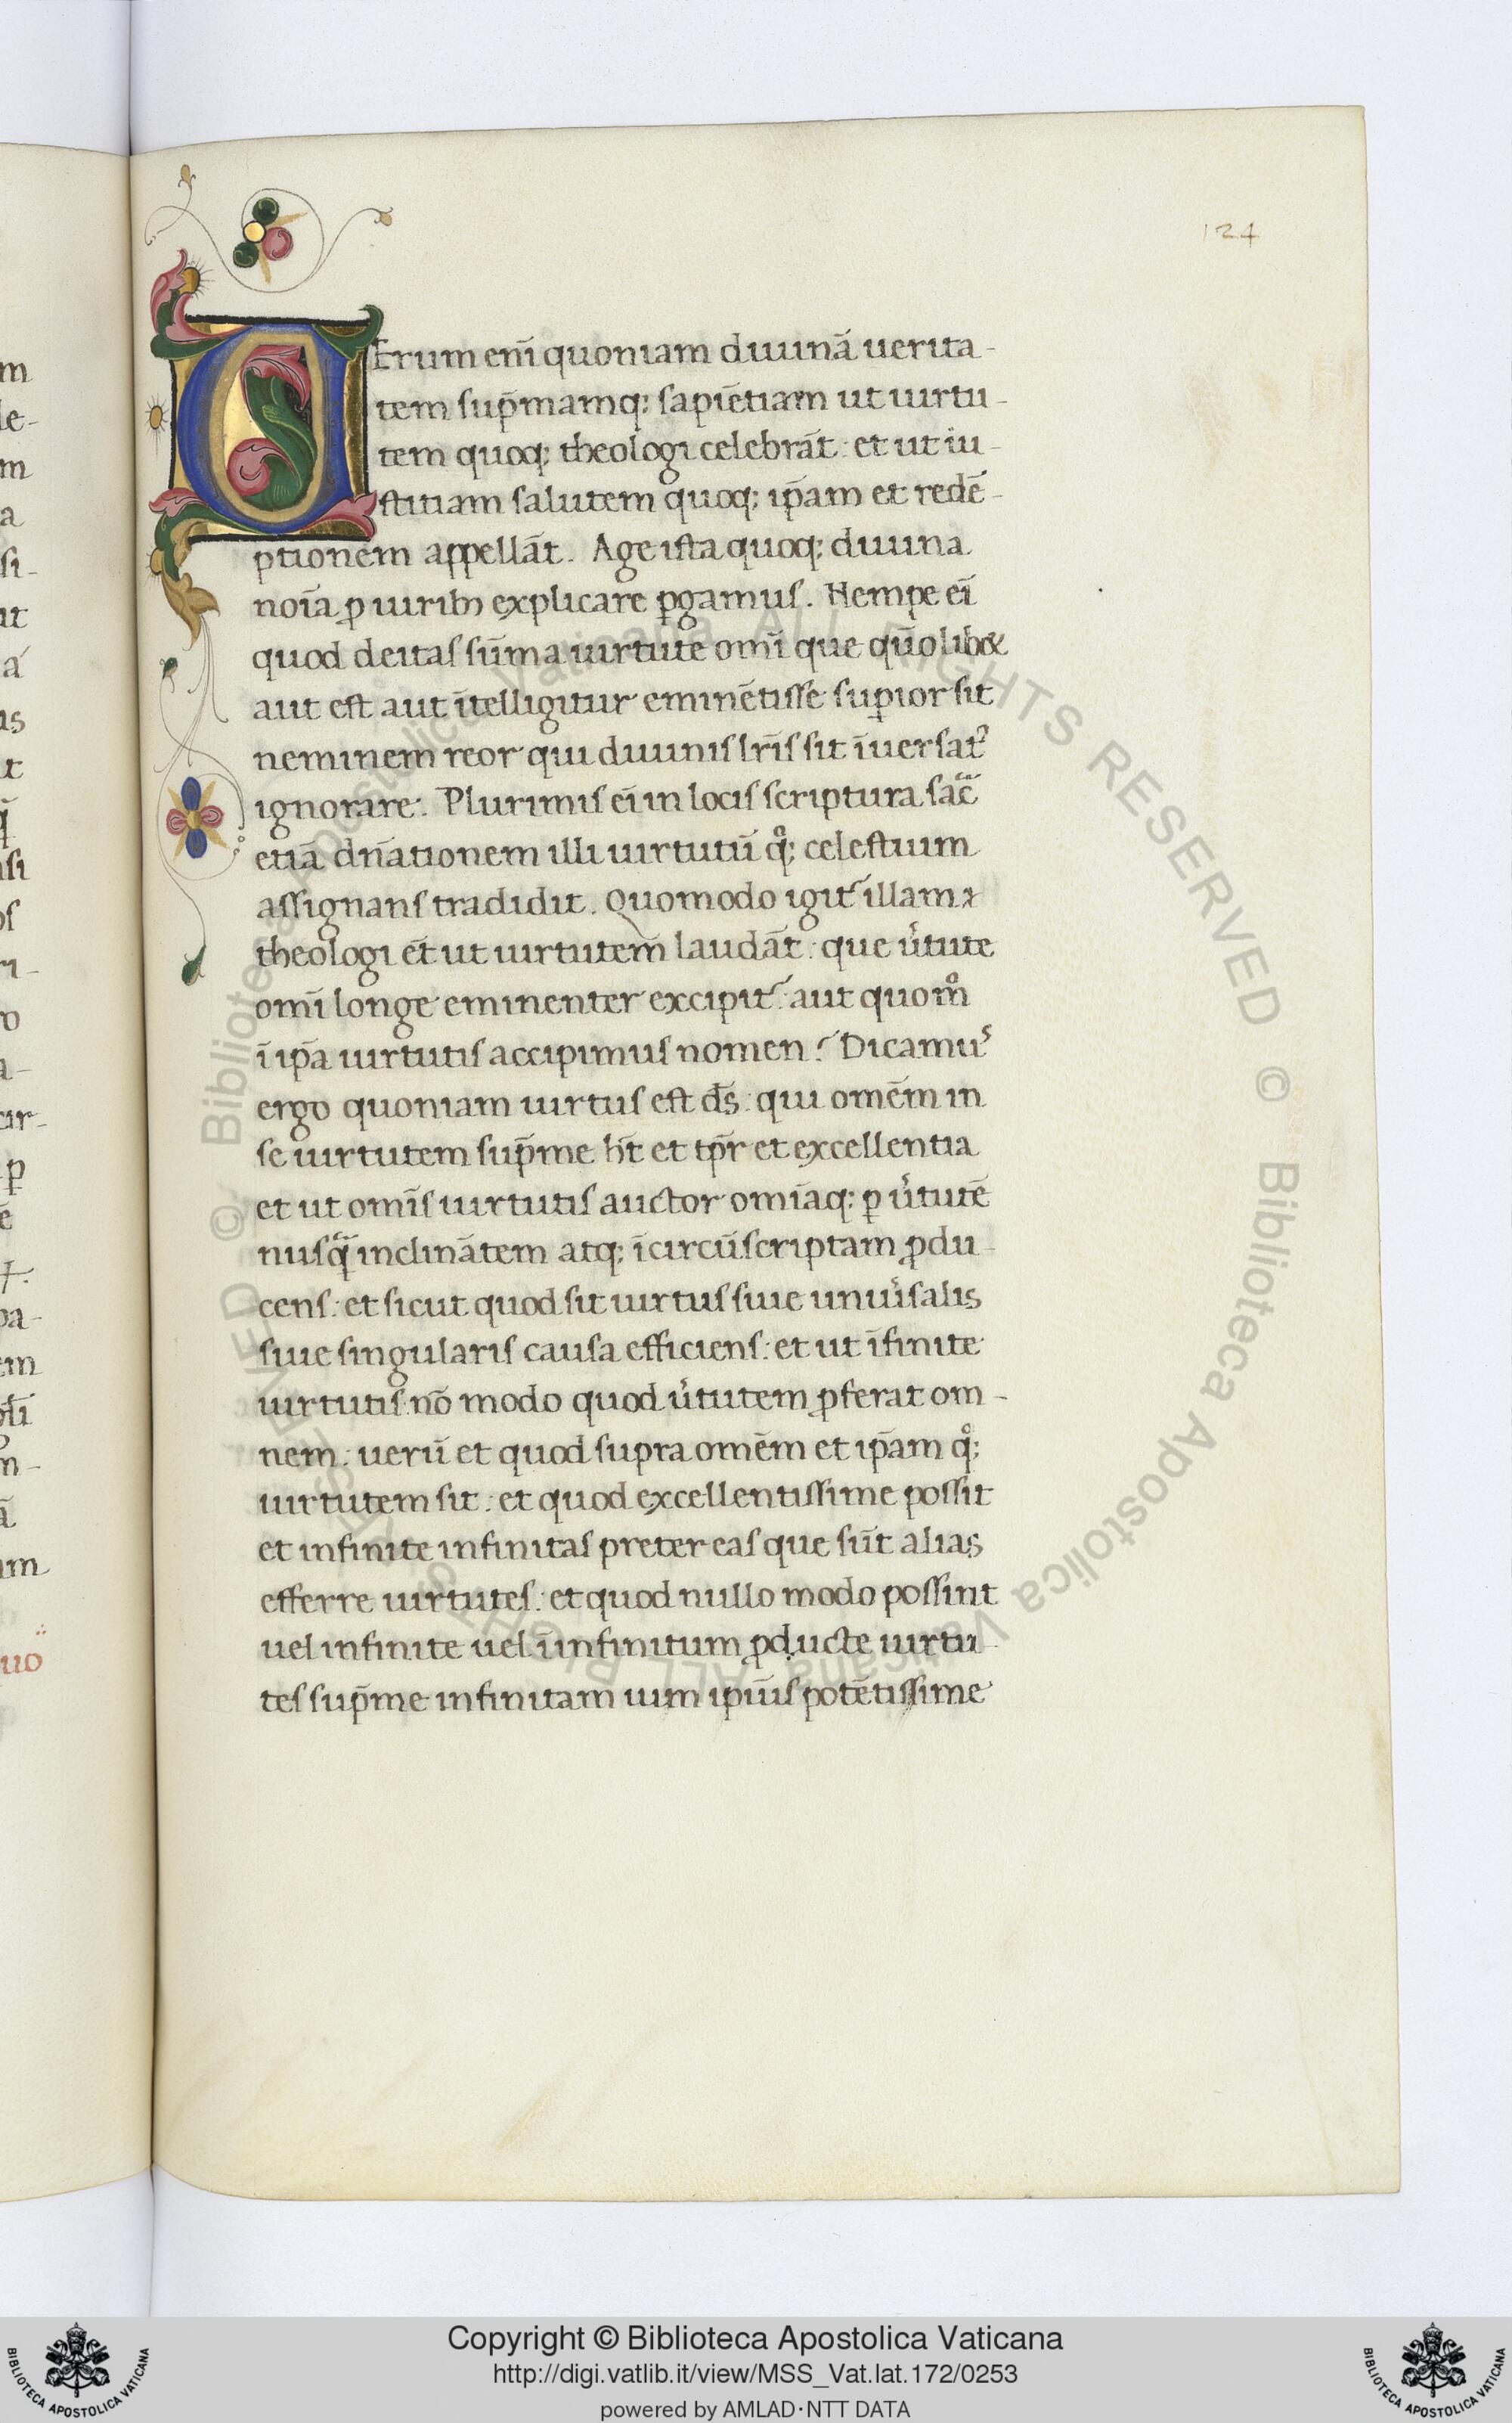 124
UErum enī quoniam diuinā uerita-
tem sup̄mamq; sapiētiam ut uirtu-
tem quoq; theologi celebrāt: et ut iu-
stitiam salutem quoq; ip̄am et redē-
ptionem appellāt. Age ista quoq; diuina
noīa ꝓ uirib; explicare ꝑgamus. Nempe eī
quod deitas sūma uirtute omī que qūolibet
aut est aut ītelligitur eminētisse suꝑior sit
neminem reor qui diuinis lr̄is sit īuersatꝰ
ignorare. Plurimis eī in locis scriptura sac̄
etiā dn̄ationem illi uirtutū qͦ; celestium
assignans tradidit. Quomodo igit᷑ illam
theologi et̄ ut uirtutem laudāt: que u̓tute
omī longe eminenter excipit᷑: aut quomͦ
ī ip̄a uirtutis accipimus nomen? Dicamuˢ
ergo quoniam uirtus est d̄s: qui omēm in
se uirtutem sup̄me h̄t et tp̄r et excellentia
et ut omīs uirtutis auctor omīaq; ꝑ u̓tutē
nusq̄ inclinātem atq; īcircūscriptam ꝓdu-
cens: et sicut quod sit uirtus siue uniu̓salis
siue singularis causa efficiens: et ut īfinite
uirtutis nō modo quod u̓tutem ꝓferat om-
nem: uerū et quod supra omēm et ip̄am qͦ;
uirtutem sit: et quod excellentissime possit
et infinite infinitas preter eas que sūt alias
efferre uirtutes: et quod nullo modo possint
uel infinite uel ī infinitum ꝓducte uirtu-
tes sup̄me infinitam uim ipīus potētissime
Copyright © Biblioteca Apostolica Vaticana
http://digi.vatlib.it/view/MSS_Vat.lat.172/0253
powered by AMLAD·NTT DATA
BIBLIOTECA APOSTOLICA VATICANA
BIBLIOTECA APOSTOLICA VATICANA